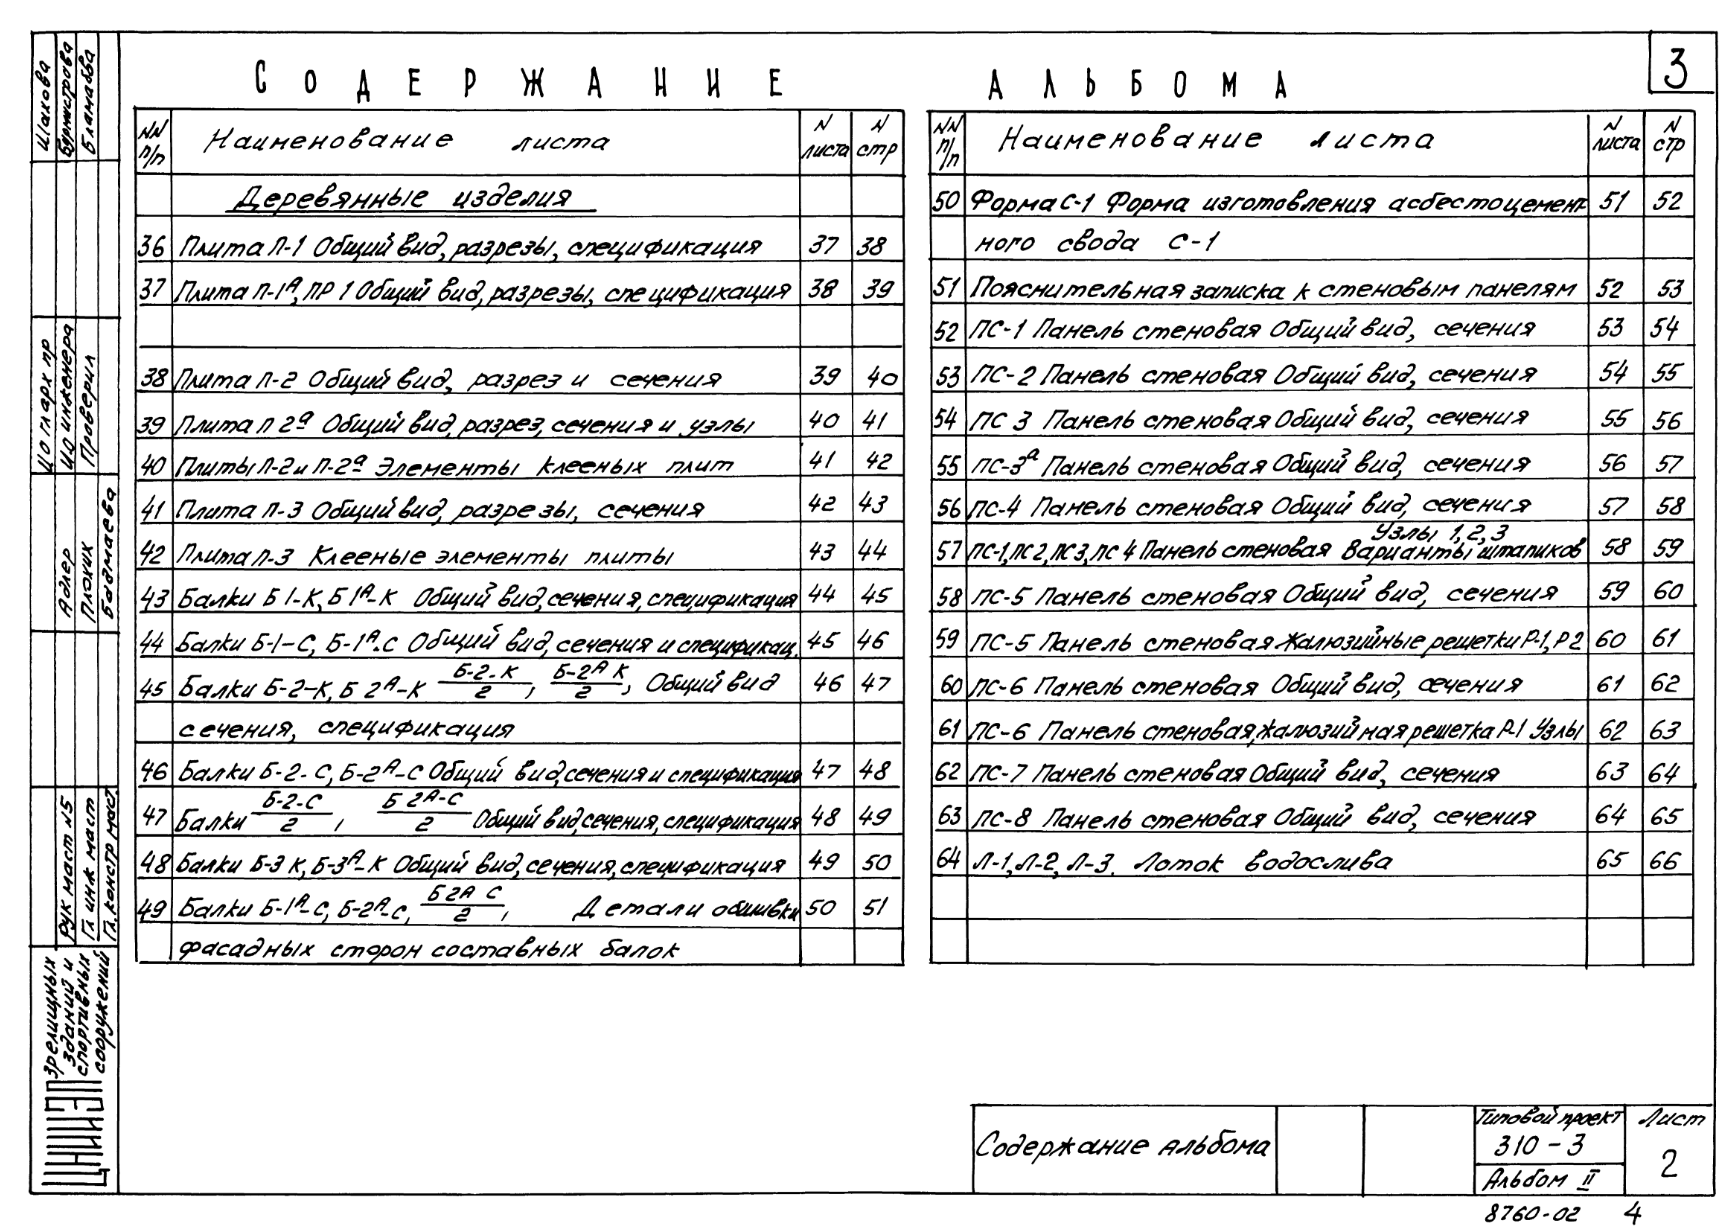 3
СОДЕРЖАНИЕ АЛЬБОМА
NN п/п Наименование листа N листа N стр
Деревянные изделия
36 Плита П-1 Общий вид, разрезы, спецификация 37 38
37 Плита П-1А, ПР 1 Общий вид, разрезы, спецификация 38 39
38 Плита П-2 Общий вид, разрез и сечения 39 40
39 Плита П 2а Общий вид, разрез, сечения и узлы 40 41
40 Плиты П-2 и П-2а Элементы клееных плит 41 42
41 Плита П-3 Общий вид, разрезы, сечения 42 43
42 Плита П-3 Клееные элементы плиты 43 44
43 Балки Б 1-К, Б 1А-К Общий вид, сечения, спецификация 44 45
44 Балки Б-1-С, Б-1А-С Общий вид, сечения и спецификац. 45 46
45 Балки Б-2-К, Б 2А-К Б-2-К/2, Б-2А К/2, Общий вид 46 47
сечения, спецификация
46 Балки Б-2-С, Б-2А-С Общий вид, сечения и спецификация 47 48
47 Балки Б-2-С/2, Б 2А-С/2 Общий вид, сечения, спецификация 48 49
48 Балки Б-3 К, Б-3А-К Общий вид, сечения, спецификация 49 50
49 Балки Б-1А-С, Б-2А-С, Б 2А С/2, Детали обшивки 50 51
фасадных сторон составных балок
NN п/п Наименование листа N листа N стр
50 Форма С-1 Форма изготовления асбестоцемент- 51 52
ного свода С-1
51 Пояснительная записка к стеновым панелям 52 53
52 ПС-1 Панель стеновая Общий вид, сечения 53 54
53 ПС-2 Панель стеновая Общий вид, сечения 54 55
54 ПС 3 Панель стеновая Общий вид, сечения 55 56
55 ПС-3А Панель стеновая Общий вид, сечения 56 57
56 ПС-4 Панель стеновая Общий вид, сечения 57 58
Узлы 1, 2, 3
57 ПС-1, ПС 2, ПС 3, ПС 4 Панель стеновая Варианты штапиков 58 59
58 ПС-5 Панель стеновая Общий вид, сечения 59 60
59 ПС-5 Панель стеновая Жалюзийные решетки Р-1, Р 2 60 61
60 ПС-6 Панель стеновая Общий вид, сечения 61 62
61 ПС-6 Панель стеновая, Жалюзийная решетка Р-1 Узлы 62 63
62 ПС-7 Панель стеновая Общий вид, сечения 63 64
63 ПС-8 Панель стеновая Общий вид, сечения 64 65
64 Л-1, Л-2, Л-3. Лоток водослива 65 66
Содержание альбома
Типовой проект
310-3
Альбом II
Лист
2
8760-02 4
Шахова
Бурмистрова
ИО гл арх пр
ИО инженера
Проверил
Адлер
Плохих
Бадмаева
Рук маст N5
Гл инж маст
Гл. констр маст.
зрелищных
зданий и
спортивных
сооружений